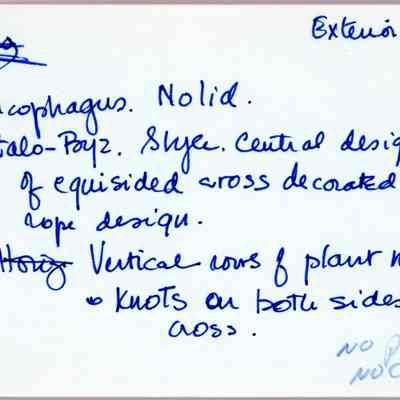 Exterior
cophagus. No lid.
talo-Byz. Style. Central desig
of equisided cross decorated
rope design.
Horiz Vertical rows of plant m
& knots on both sides
cross.
NO
NO